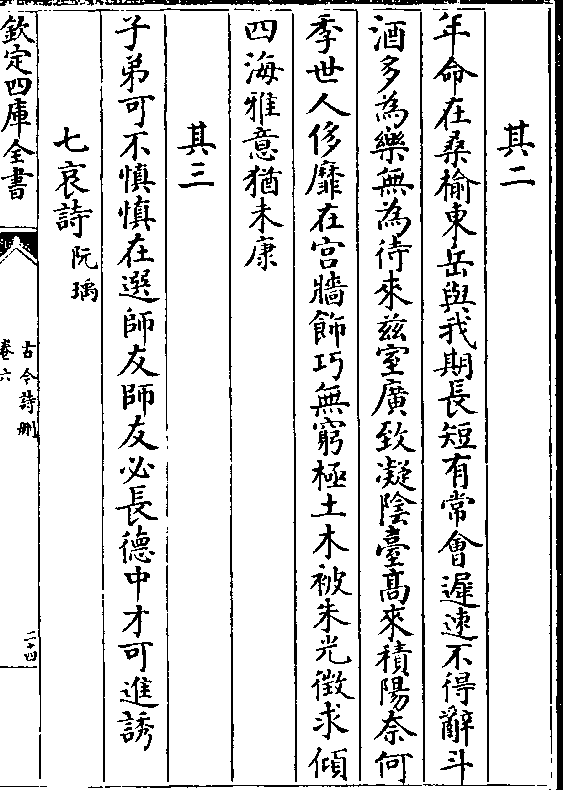 其二
年命在桑榆東岳與我期長短有常會遲速不得辭斗
酒多為樂無為待來兹室廣致凝陰臺髙來積陽奈何
季世人侈靡在宫牆飾巧無窮極土木被朱光徴求傾
四海雅意猶未康
其三
子弟可不慎慎在選師友師友必長德中才可進誘
七哀詩阮瑀
欽定四庫全書
古今詩刪
卷六
二十四